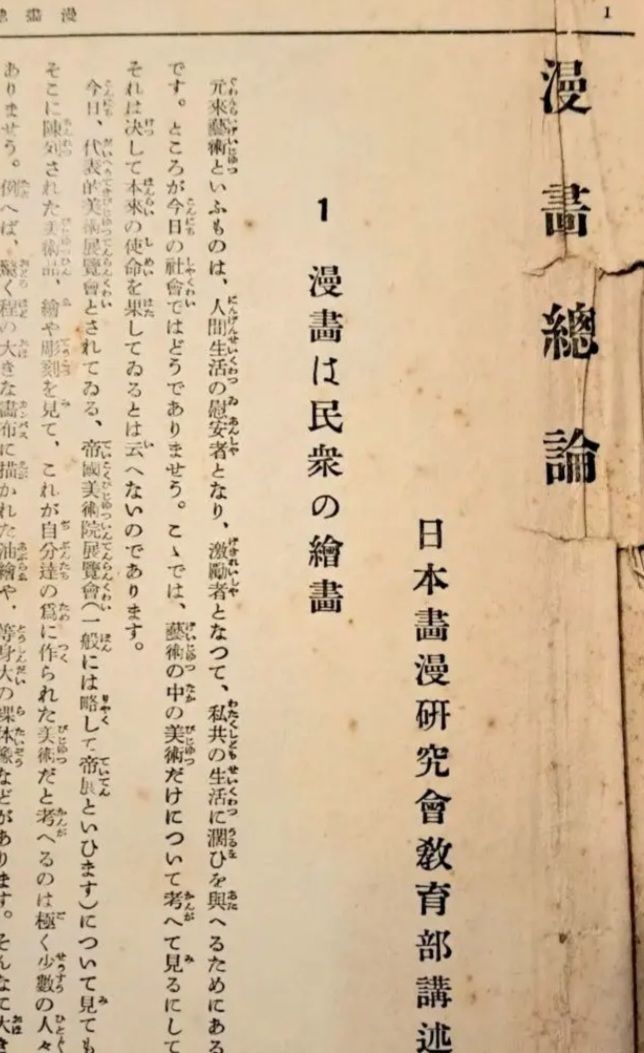 1
漫畫總
漫畫總論
日本畫漫研究會教育部講述
1 漫畫は民衆の繪畫
元來藝術といふものは、人間生活の慰安者となり、激勵者となつて、私共の生活に潤ひを與へるためにある
です。ところが今日の社會ではどうでありませう。こゝでは、藝術の中の美術だけについて考へて見るにして
それは決して本來の使命を果してゐるとは云へないのであります。
今日、代表的美術展覽會とされてゐる、帝國美術院展覽會(一般には略して帝展といひます)について見ても
そこに陳列された美術品、繪や彫刻を見て、これが自分達の爲に作られた美術だと考へるのは極く少數の人々
ありませう。例へば、驚く程の大きな畫布に描かれた油繪や、等身大の裸体像などがあります。そんなに大き